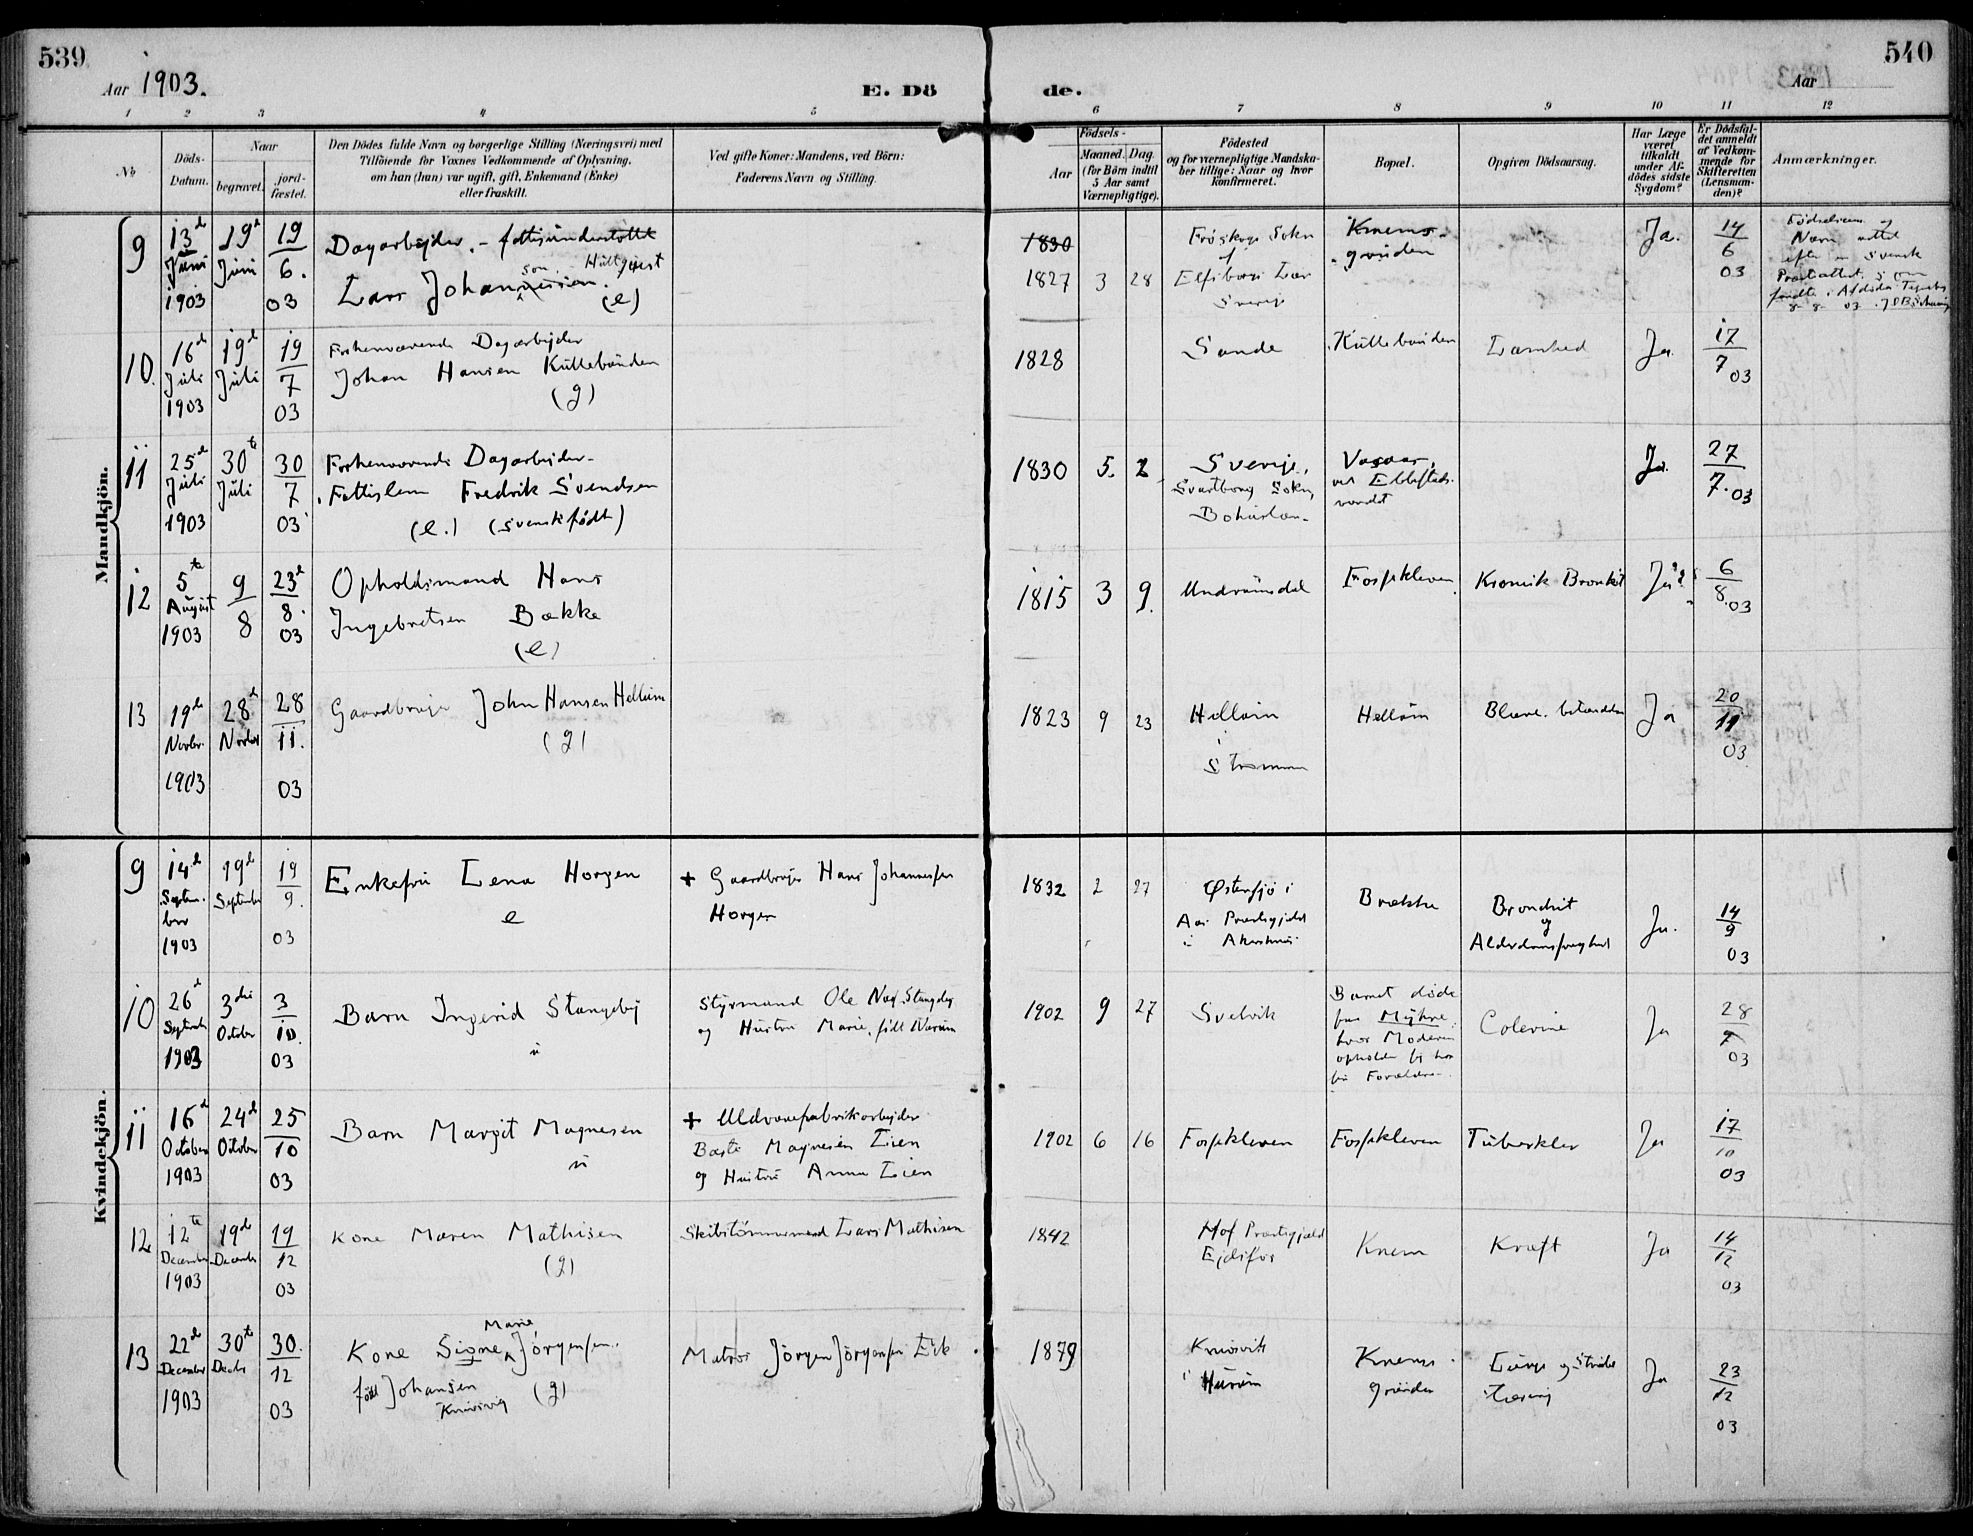 539
540
Aar 1903.
E. Dö
de.
Aar
1 2 3 4 5 6 7 8 9 10 11 12
No
Döds-Datum.
Naar
begravet.
jord-fæstet.
Den Dödes fulde Navn og borgerlige Stilling (Næringsvei) med
Tilföiende for Voxnes Vedkommende af Oplysning,
om han (hun) var ugift, gift, Enkemand (Enke)
eller fraskilt.
Ved gifte Koner: Mandens, ved Börn:
Faderens Navn og Stilling.
Födsels-
Aar
Maaned. Dag.
(for Börn indtil
5 Aar samt
Værnepligtige).
Födested
og for værnepligtige Mandska-
ber tillige: Naar og hvor
konfirmeret.
Bopæl.
Opgiven Dödsaarsag.
Har Læge
været
tilkaldt
under Af-
dödes sidste
Sygdom?
Er Dödsfal-
det anmeldt
af Vedkom-
mende for
Skifteretten
(Lensman-
den)?
Anmærkninger.
Mandkjön.
9
13d Juni 1903
19d Juni
19 6. 03
Dagarbejder. - fattigunderstøttet
Lars Johannessen. son Hultquist (e)
1830
1827 3 28
Sokn
Elfsborgs Læn
Sverige
Knems-
grunden
Ja.
14 6 03
10.
16d Juli 1903
19d Juli
19 7 03
Forhenværende Dagarbejder
Johan Hansen Küllebunden
(g)
1828
Sande
Küllebunden
Lamhed
Ja.
17 7 03
11
25d Juli 1903
30te Juli
30 7 03
Forhenværende Dagarbejder-
Fattiglem Fredrik Svendsen
(e.) (svenskfødt)
1830 5. 2
Sverige,
Svartborg Sokn,
Bohuslæn.
ved Ebbestads-
vandet
Ja.
27 7.03
12
5te August 1903
9 8
23d 8. 03
Opholdsmand Hans
Ingebretsen Bække
(e)
1815 3 9.
Undrumsdal
Fossekleven
Kronisk Bronkit
Ja
6 8.03
13
19de Novbr. 1903
28d Novbr
28 11. 03
Gaardbruger John Hansen Hellum
(g)
1823 9 23
Hellum
i
Strømmen
Hellum
Blære. betændelse
Ja
20 11 03
Kvindekjön.
9
14d Septem-
ber
1903
19d September
19 9. 03
Enkefru Lena Horgen
e
+ Gaardbruger Hans Johannessen
Horgen
1832 2 27
Østensjø i
Aas Præstegjeld
i Akershus
Brække
Bronchit
og
Alderdomssvaghed
Ja.
14 9 03
10
26d Septembr 1903
3die October
3 10. 03
Barn Ingerid Stangeby
u
Styrmand Ole Stangeby
og Hustru Marie, født Narum
1902 9 27
Svelvik
Barnet døde
paa Myhre,
hvor Moderen
opholder sig hos
sin Forældre.
Colerine
Ja
28 9 03
11
16d October 1903
24d October
25 10 03
Barn Margit Magnesen
u
+ Uldvarefabrikarbejder
Magnesen Lien
og Hustru Anna Lien
1902 6 16
Fossekleven
Fossekleven
Tuberkler
Ja
17 10 03
12
12te December 1903
19de December
19 12 03
Kone Maren Mathisen
(g)
Skibstömmermand Lars Mathisen
1842
Hof Præstegjeld
Ejdsfos
Knem
Kræft
Ja
14 12 03
13
22d December 1903
30te Decbr
30. 12 03
Kone Signe Marie Jörgensen.
født Johansen
Knivsvig (g)
Matros Jörgen Jörgensen Eik
1879
Knivsvik
i Hurum
Knems-
grunden
Lunge og Strube
tæring
Ja
23 12 03